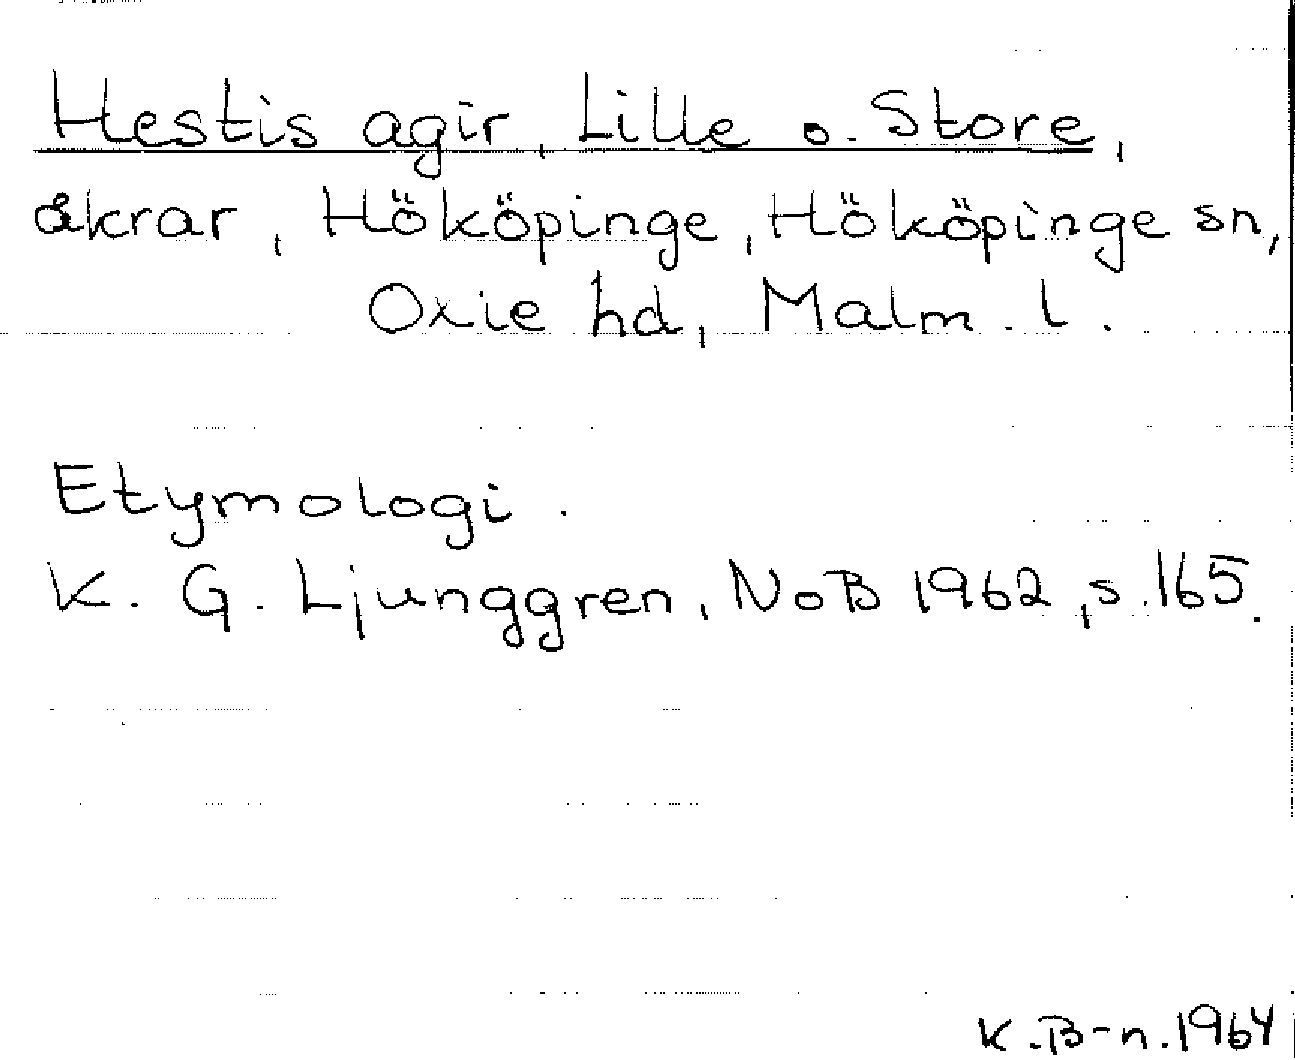 Hestis agir, Lille o. Store,
åkrar, Hököpinge, Hököpinge sn,
Oxie hd, Malm. l.
Etymologi.
K. G. Ljunggren, NoB 1962, s. 165.
K. B-n. 1964